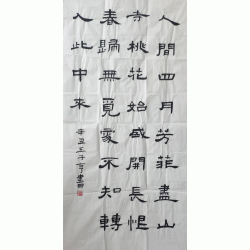 人間四月芳菲盡山
寺桃花始盛開長恨
春歸無覓處不知轉
入此中來
辛丑